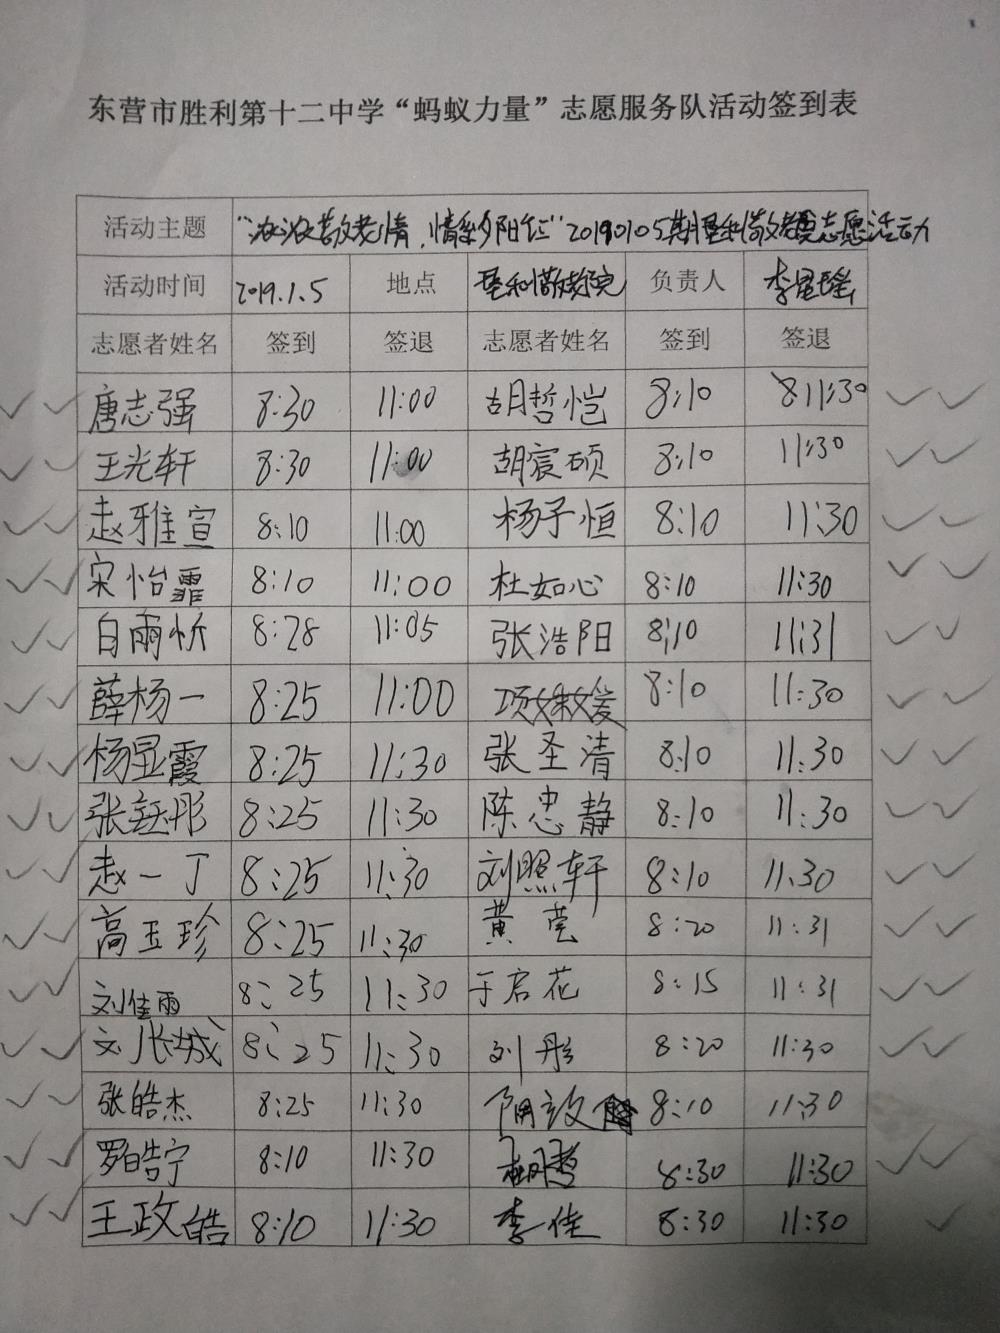 东营市胜利第十二中学“蚂蚁力量”志愿服务队活动签到表
活动主题 “浓浓敬老情，情系夕阳红”20190105期垦利敬老院志愿活动
活动时间 2019.1.5 地点 垦利敬老院 负责人 李星瑶
志愿者姓名 签到 签退 志愿者姓名 签到 签退
唐志强 8:30 11:00 胡哲恺 8:10 11:30
王光轩 8:30 11:00 胡宸硕 8:10 11:30
赵雅宣 8:10 11:00 杨子恒 8:10 11:30
宋怡霏 8:10 11:00 杜如心 8:10 11:30
白雨忻 8:28 11:05 张浩阳 8:10 11:31
薛杨一 8:25 11:00 8:10 11:30
杨显霞 8:25 11:30 张圣清 8:10 11:30
张钰彤 8:25 11:30 陈忠静 8:10 11:30
赵一丁 8:25 11:30 刘照轩 8:10 11:30
高玉珍 8:25 11:30 黄莹 8:20 11:31
刘佳雨 8:25 11:30 于启花 8:15 11:31
文张城 8:25 11:30 刘彤 8:20 11:30
张皓杰 8:25 11:30 8:10 11:30
罗皓宁 8:10 11:30 8:30 11:30
王政皓 8:10 11:30 李佳 8:30 11:30